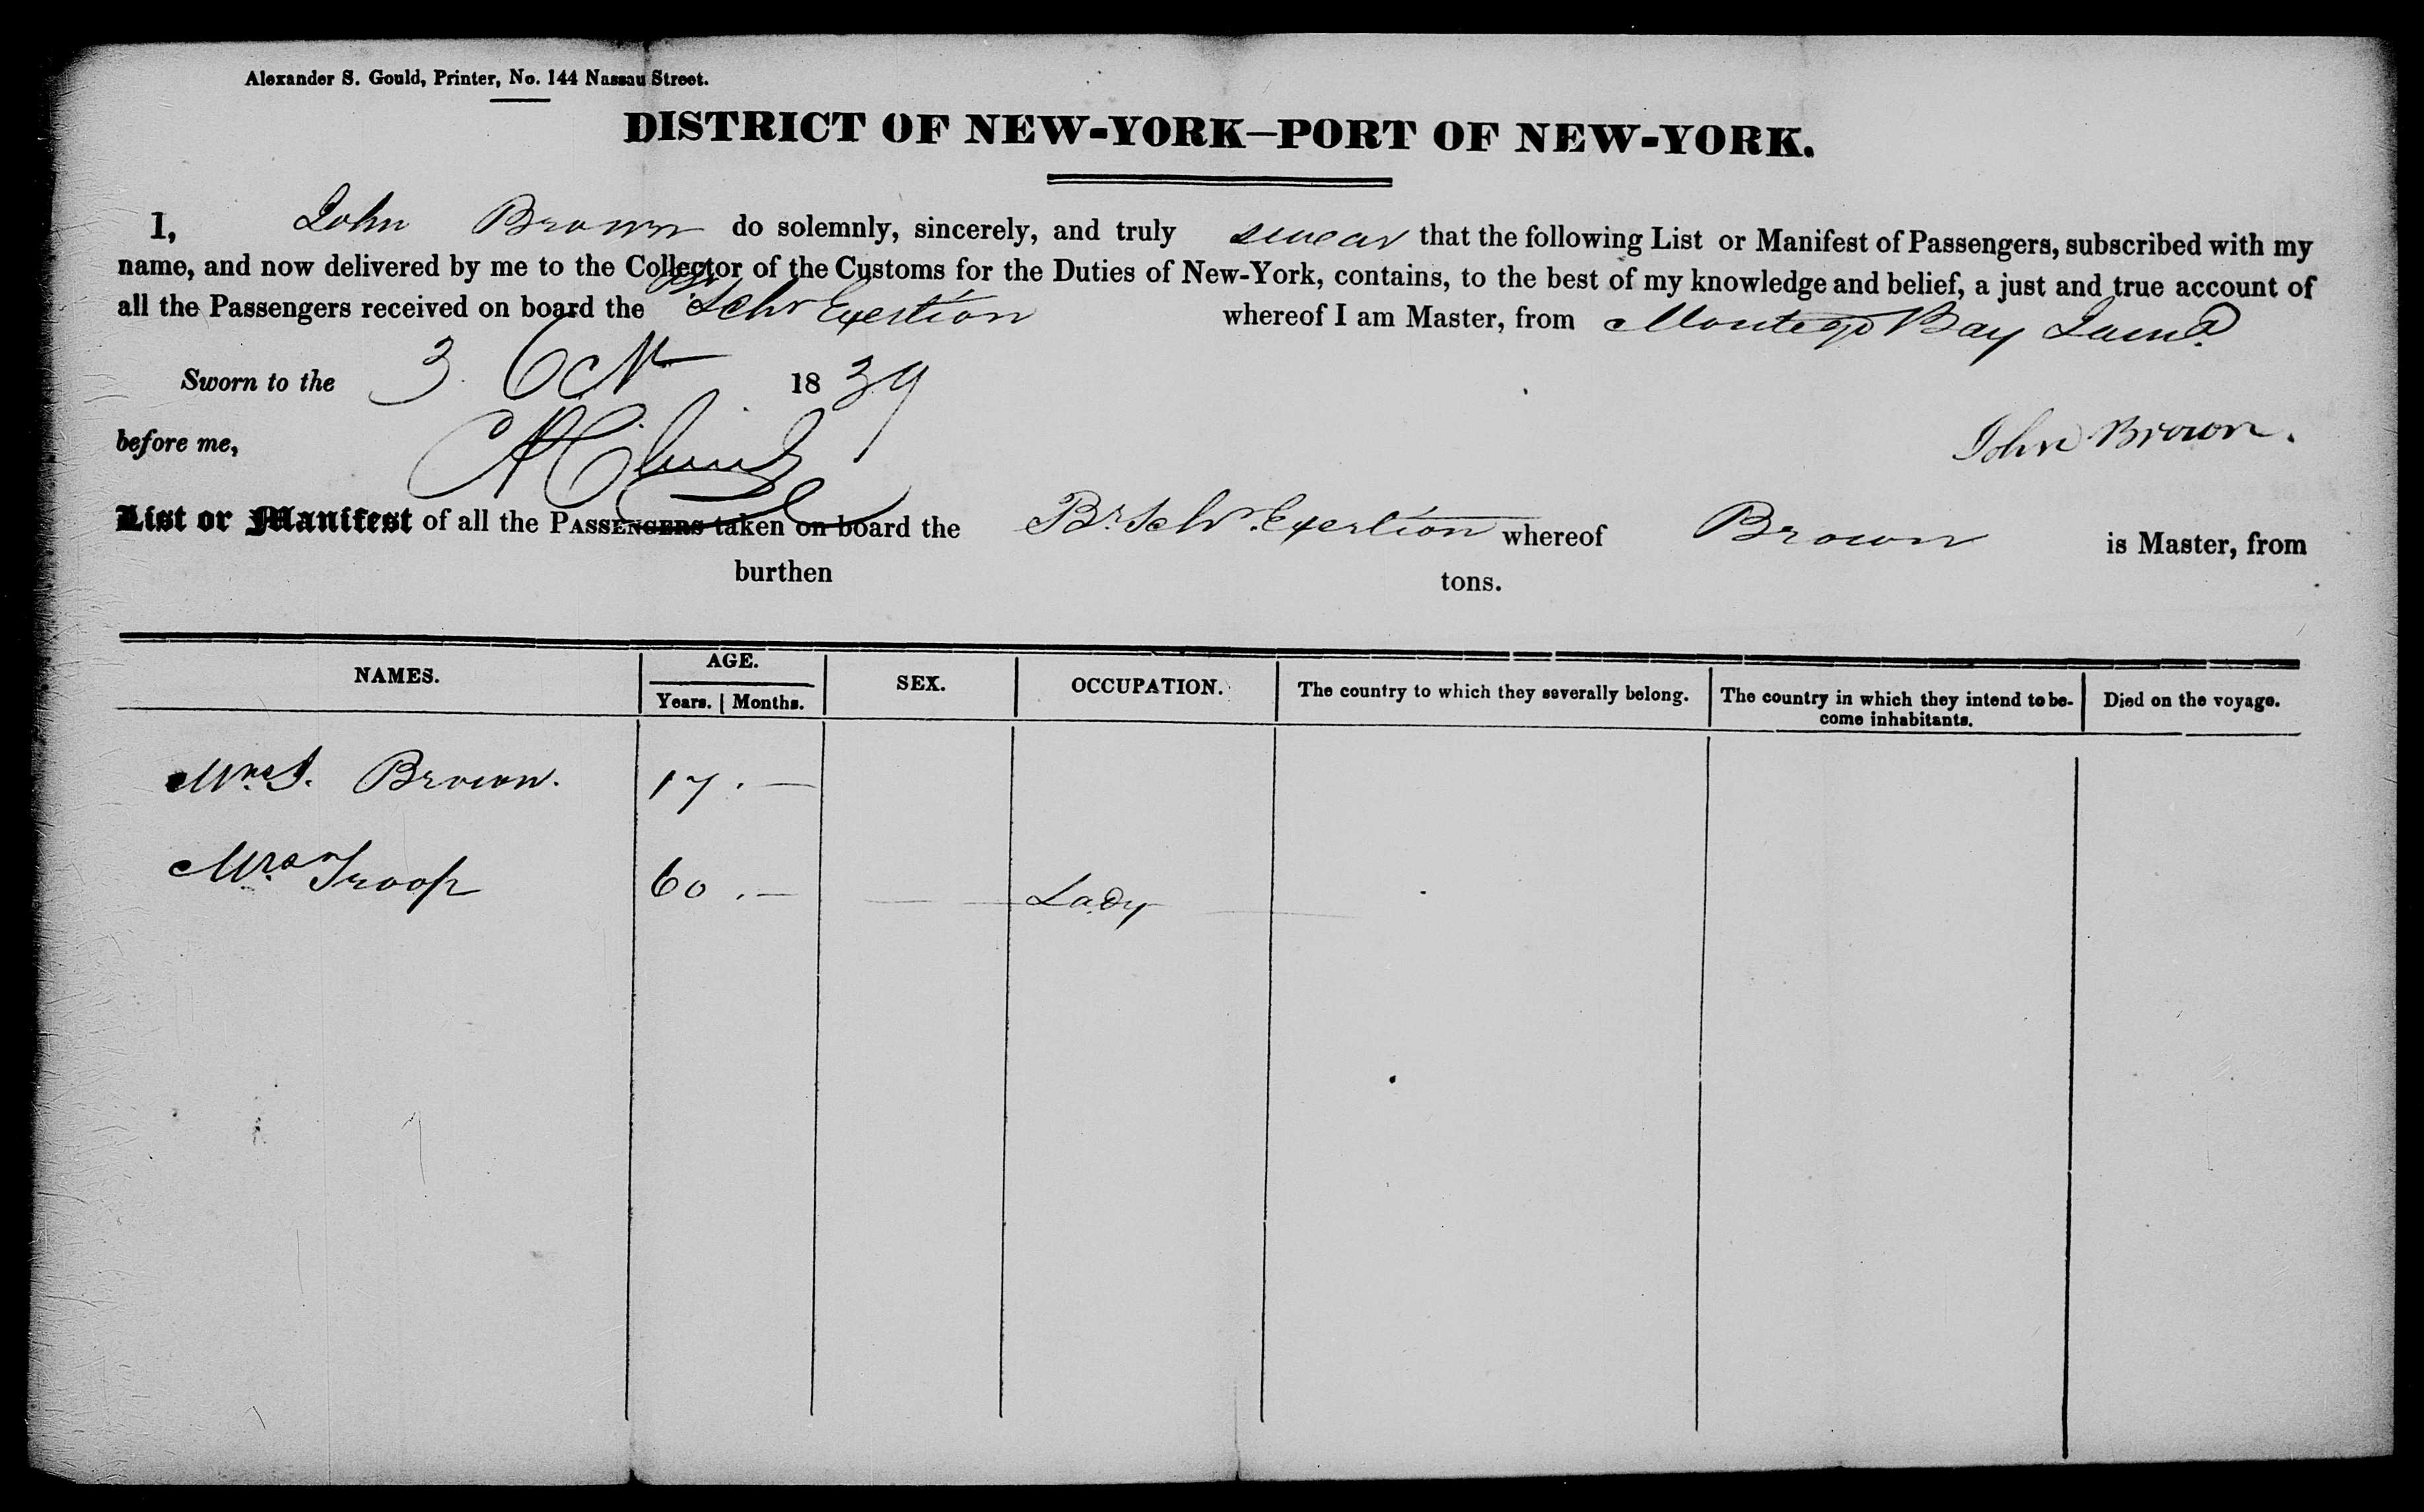 Alexander S. Gould, Printer, No. 144 Nassau Street.
DISTRICT OF NEW-YORK—PORT OF NEW-YORK.
I, John Brown do solemnly, sincerely, and truly swear that the following List or Manifest of Passengers, subscribed with my
name, and now delivered by me to the Collector of the Customs for the Duties of New-York, contains, to the best of my knowledge and belief, a just and true account of
all the Passengers received on board the Br Schr Exertion whereof I am Master, from Montego Bay Jama
Sworn to the 3 Oct 1839
before me,
John Brown.
List or Manifest of all the PASSENGERS taken on board the Br. Schr. Exertion whereof Brown is Master, from
burthen tons.
NAMES. AGE. SEX. OCCUPATION. The country to which they severally belong. The country in which they intend to be- Died on the voyage.
Years. | Months. come inhabitants.
Mrs. J. Brown. 17 . —
Mrs. Troop 60 . — — — Lady —